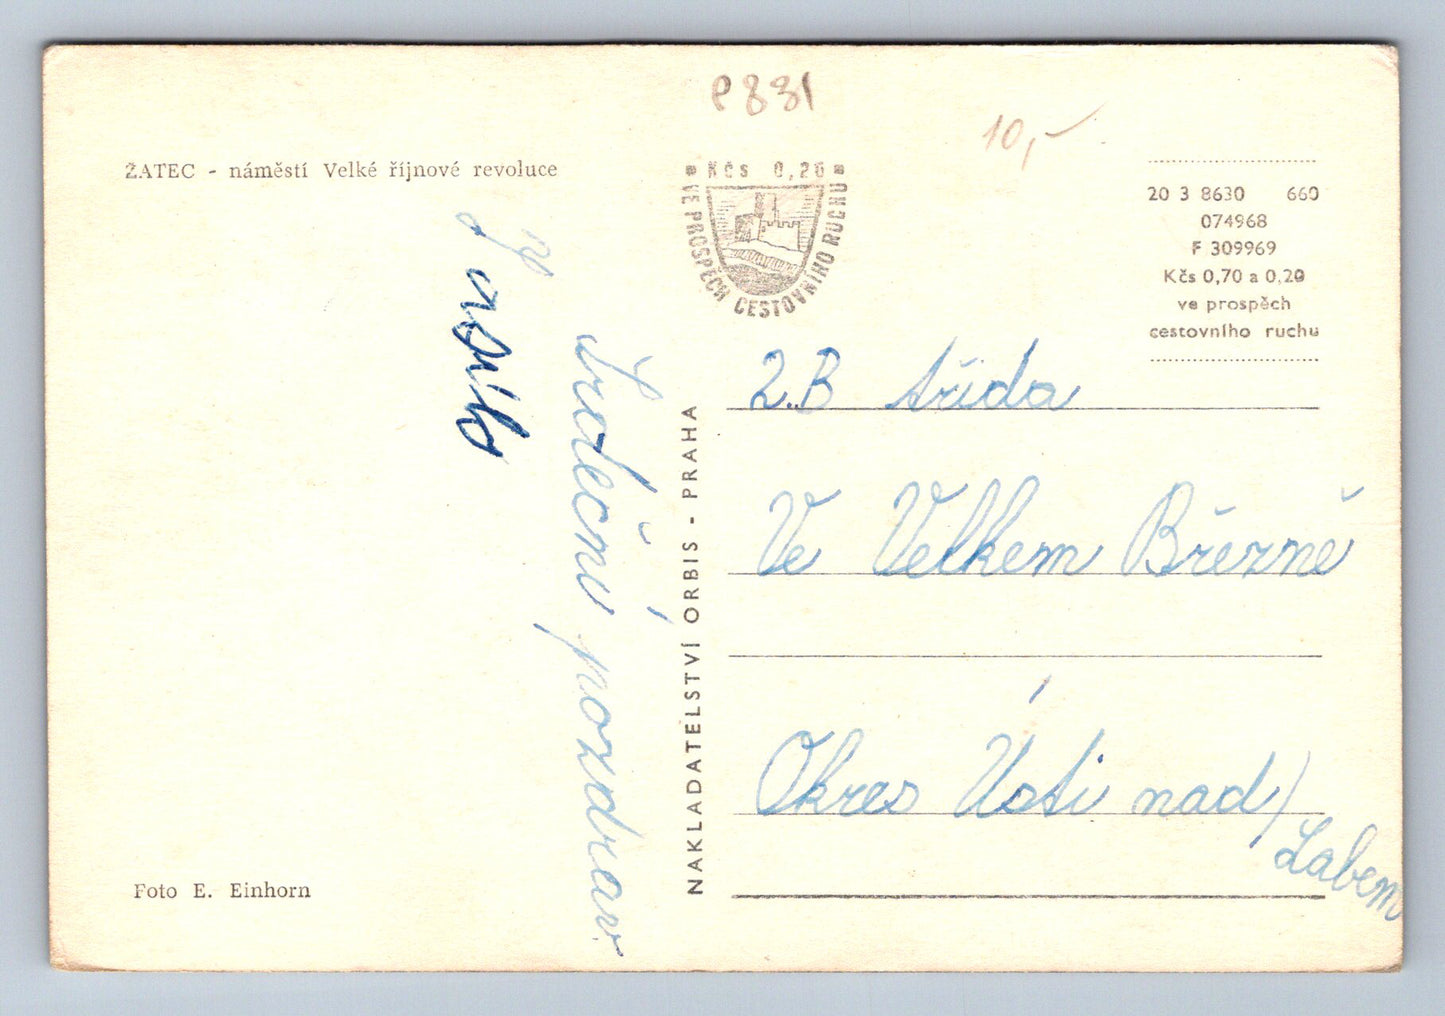 P881
10,-
ŽATEC - náměstí Velké říjnové revoluce
Kčs 0,20
VE PROSPĚCH CESTOVNÍHO RUCHU
20 3 8630 660
074968
F 309969
Kčs 0,70 a 0,20
ve prospěch
cestovního ruchu
Srdeční pozdrav
NAKLADATELSTVÍ ORBIS - PRAHA
2.B třída
Ve Velkem Březně
Okres Ústi nad/
Labem
Foto E. Einhorn